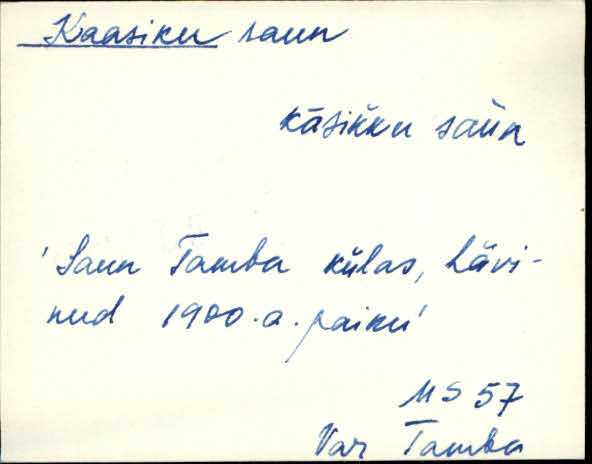 Kaasiku saun
kāsikku saun
'Saun Tamba külas, hävi-
nud 1900.a. paiku'
MS 57
Var Tamba